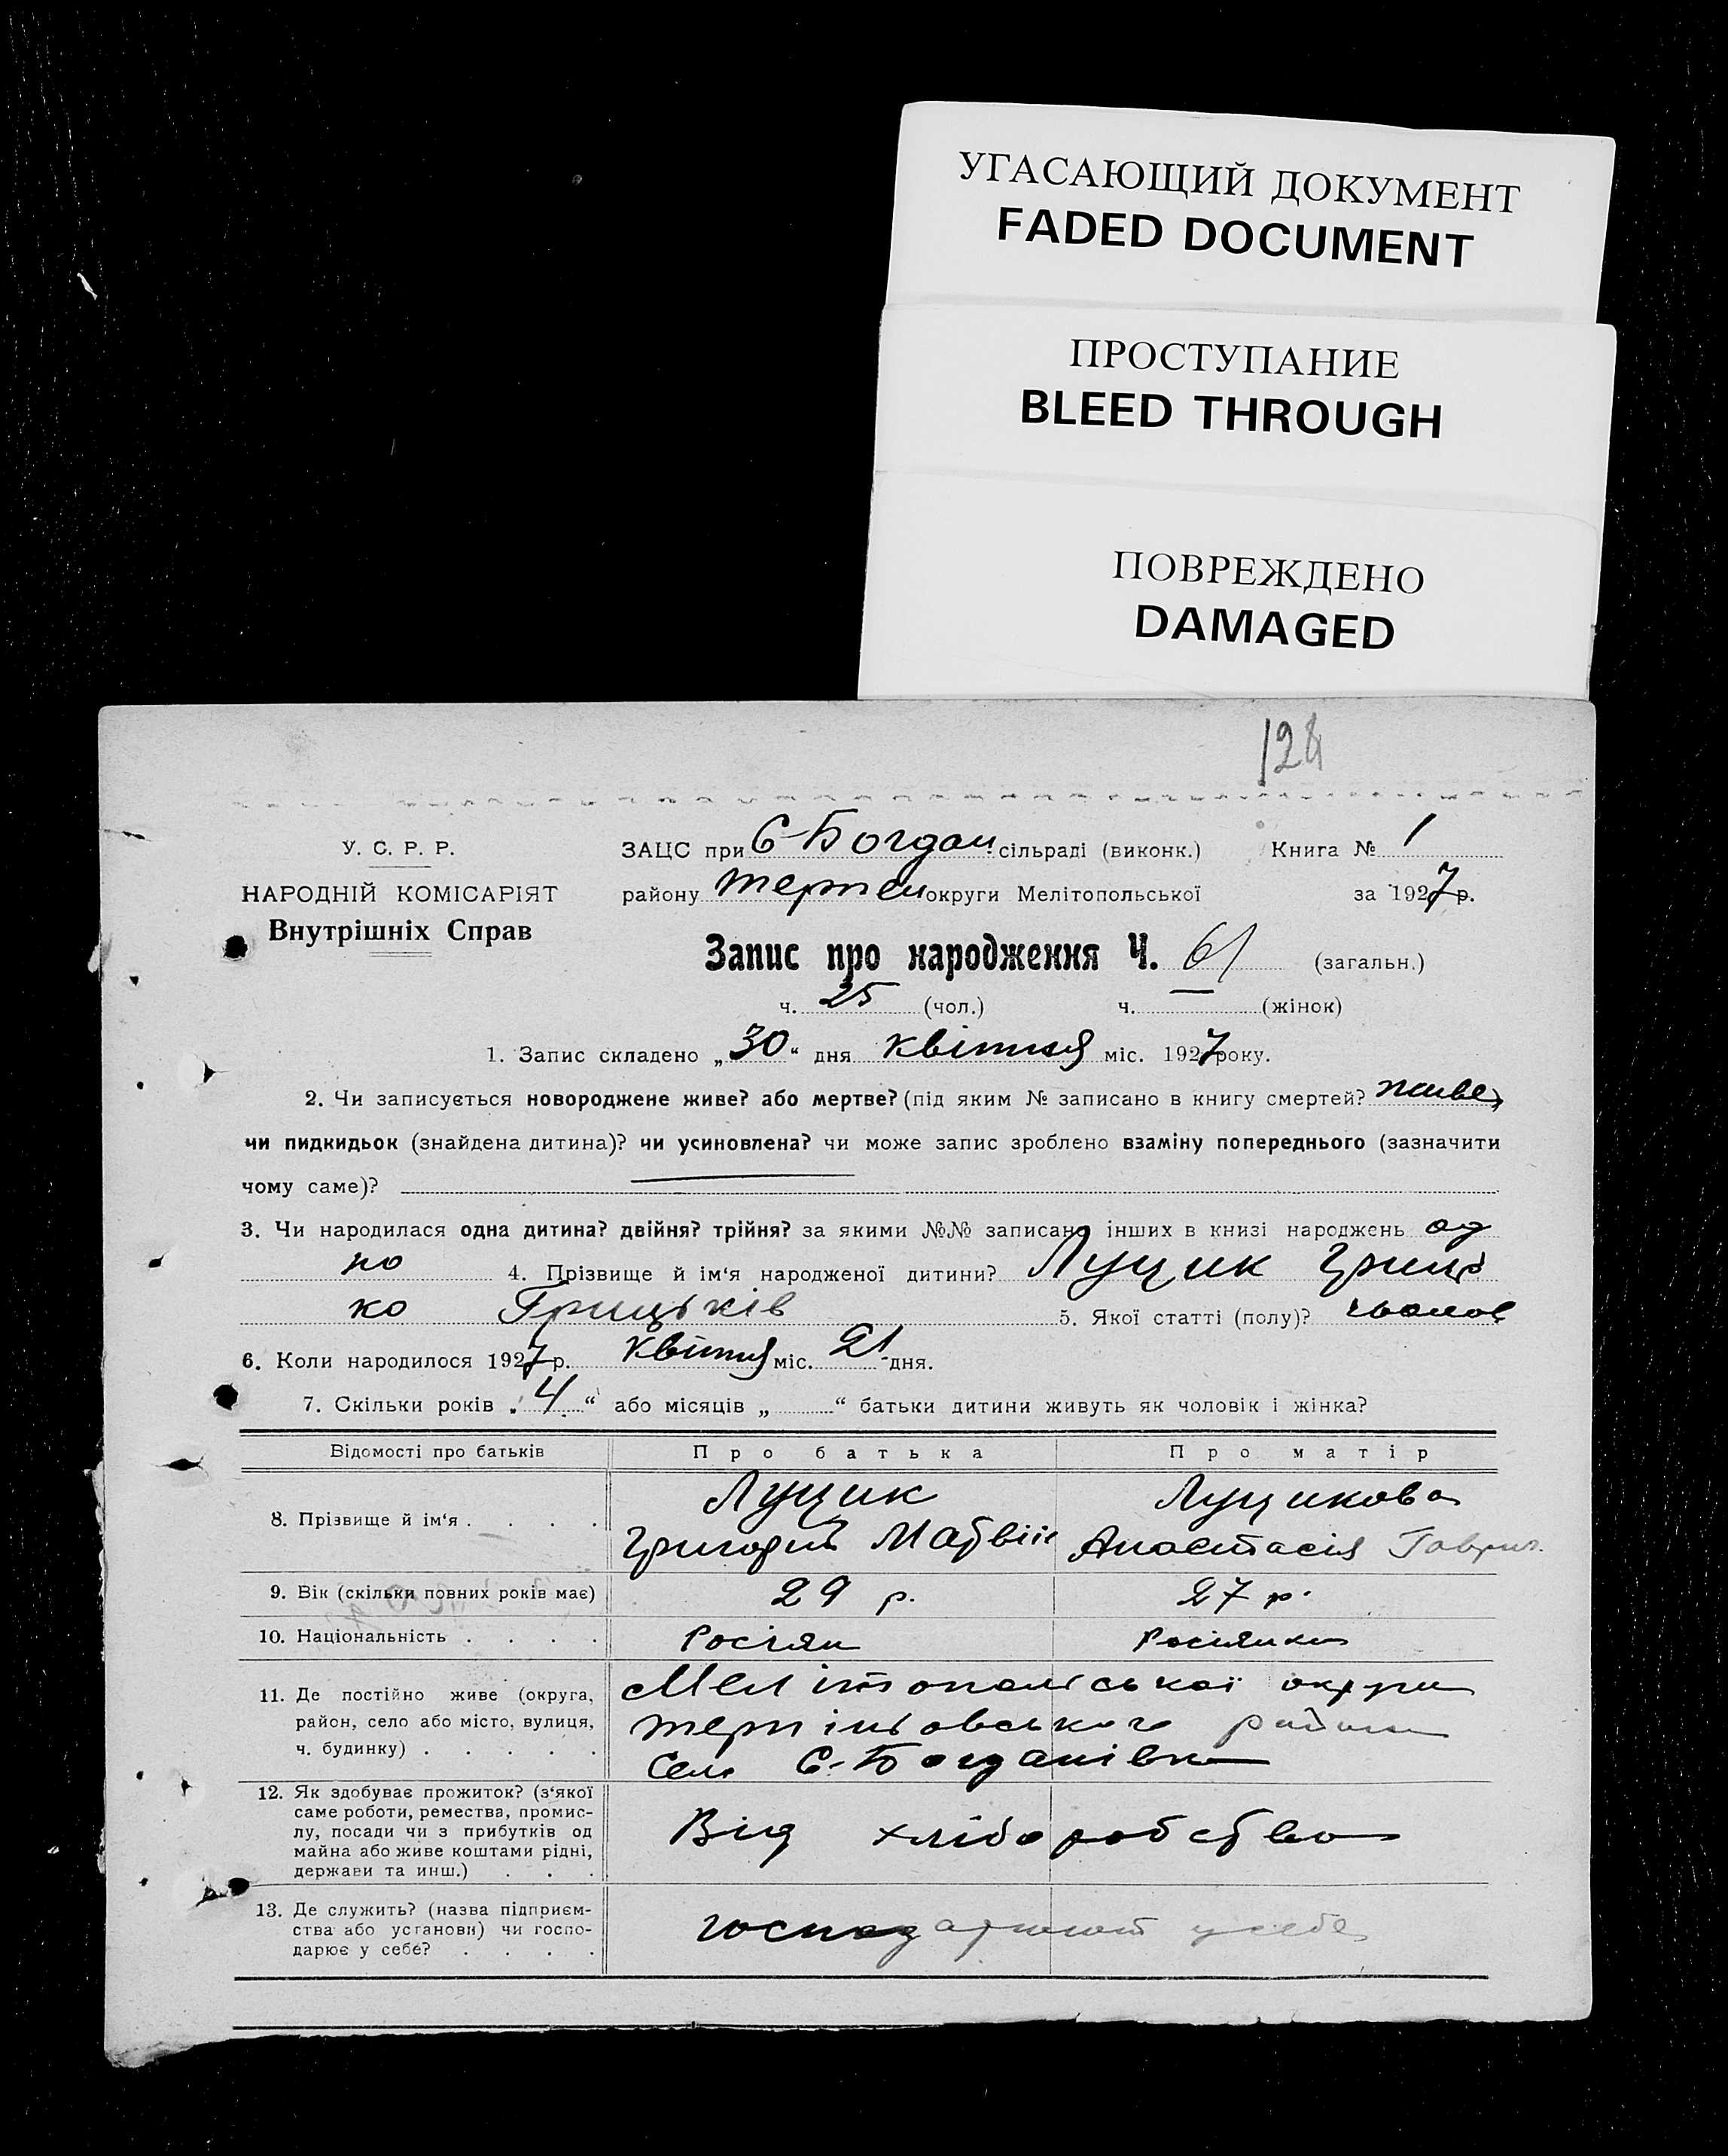 УГАСАЮЩИЙ ДОКУМЕНТ
FADED DOCUMENT
ПРОСТУПАНИЕ
BLEED THROUGH
ПОВРЕЖДЕНО
DAMAGED
128
У. С. Р. Р.
НАРОДНІЙ КОМІСАРІЯТ
Внутрішніх Справ
ЗАЦС при С-Богдан. сільраді (виконк.) Книга № 1
району Терпен округи Мелітопольської за 1927 р.
Запис про народження Ч. 61 (загальн.)
ч. 25 (чол.) ч. — (жінок)
1. Запис складено „30“ дня квітня міс. 1927 року.
2. Чи записується новороджене живе? або мертве? (під яким № записано в книгу смертей? живе,
чи пидкидьок (знайдена дитина)? чи усиновлена? чи може запис зроблено взаміну попереднього (зазначити
чому саме)?
3. Чи народилася одна дитина? двійня? трійня? за якими №№ записано інших в книзі народжень од
но 4. Прізвище й ім‘я народженої дитини? Луцик
ко Грицьків 5. Якої статті (полу)? чолов
6. Коли народилося 1927 р. Квітня міс. 21 дня.
7. Скільки років „4“ або місяців „ “ батьки дитини живуть як чоловік і жінка?
Відомості про батьків Про батька Про матір
8. Прізвище й ім‘я . . . . Луцик Луцикова
Григорій Матвіїв Анастасія Гаврил.
9. Вік (скільки повних років має) 29 р. 27 р.
10. Національність . . . . Росіян Росіянка
11. Де постійно живе (округа, Мелітопольської округи
район, село або місто, вулиця, Терпіньовського району
ч. будинку) . . . . . Село С.-Богданівка
12. Як здобуває прожиток? (з‘якої
саме роботи, ремества, промис-
лу, посади чи з прибутків од Від хліборобства
майна або живе коштами рідні,
держави та инш.) . . .
13. Де служить? (назва підприєм-
ства або установи) чи госпо- господарюют у себе
дарює у себе? . . . .